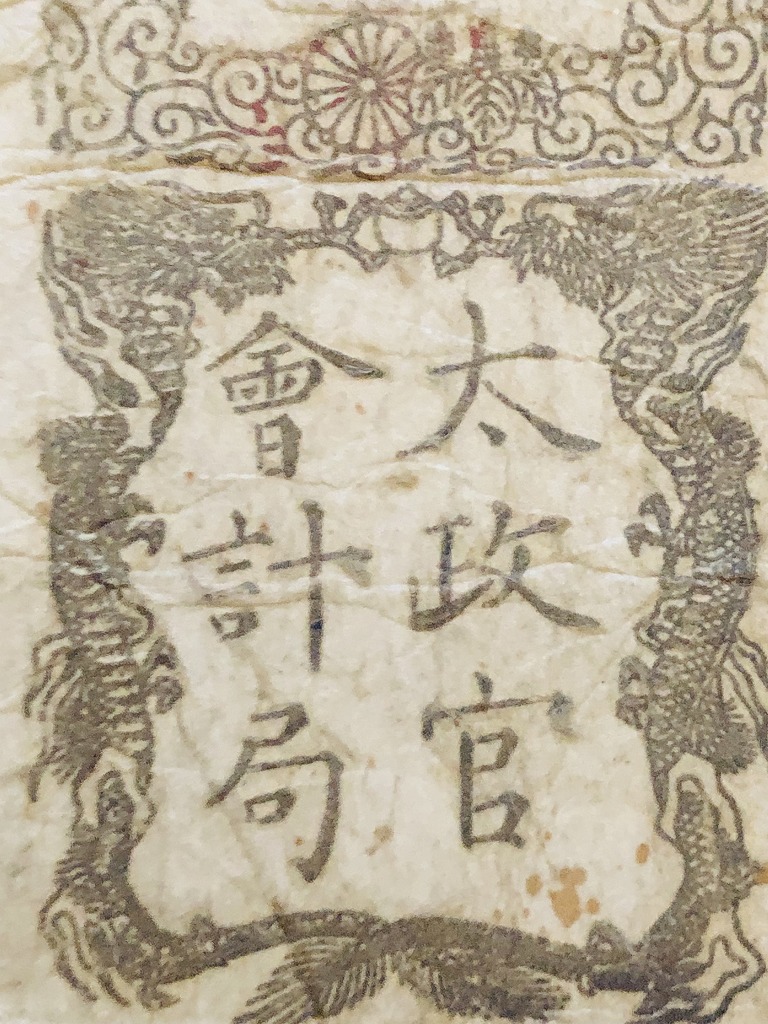 太政官
會計局